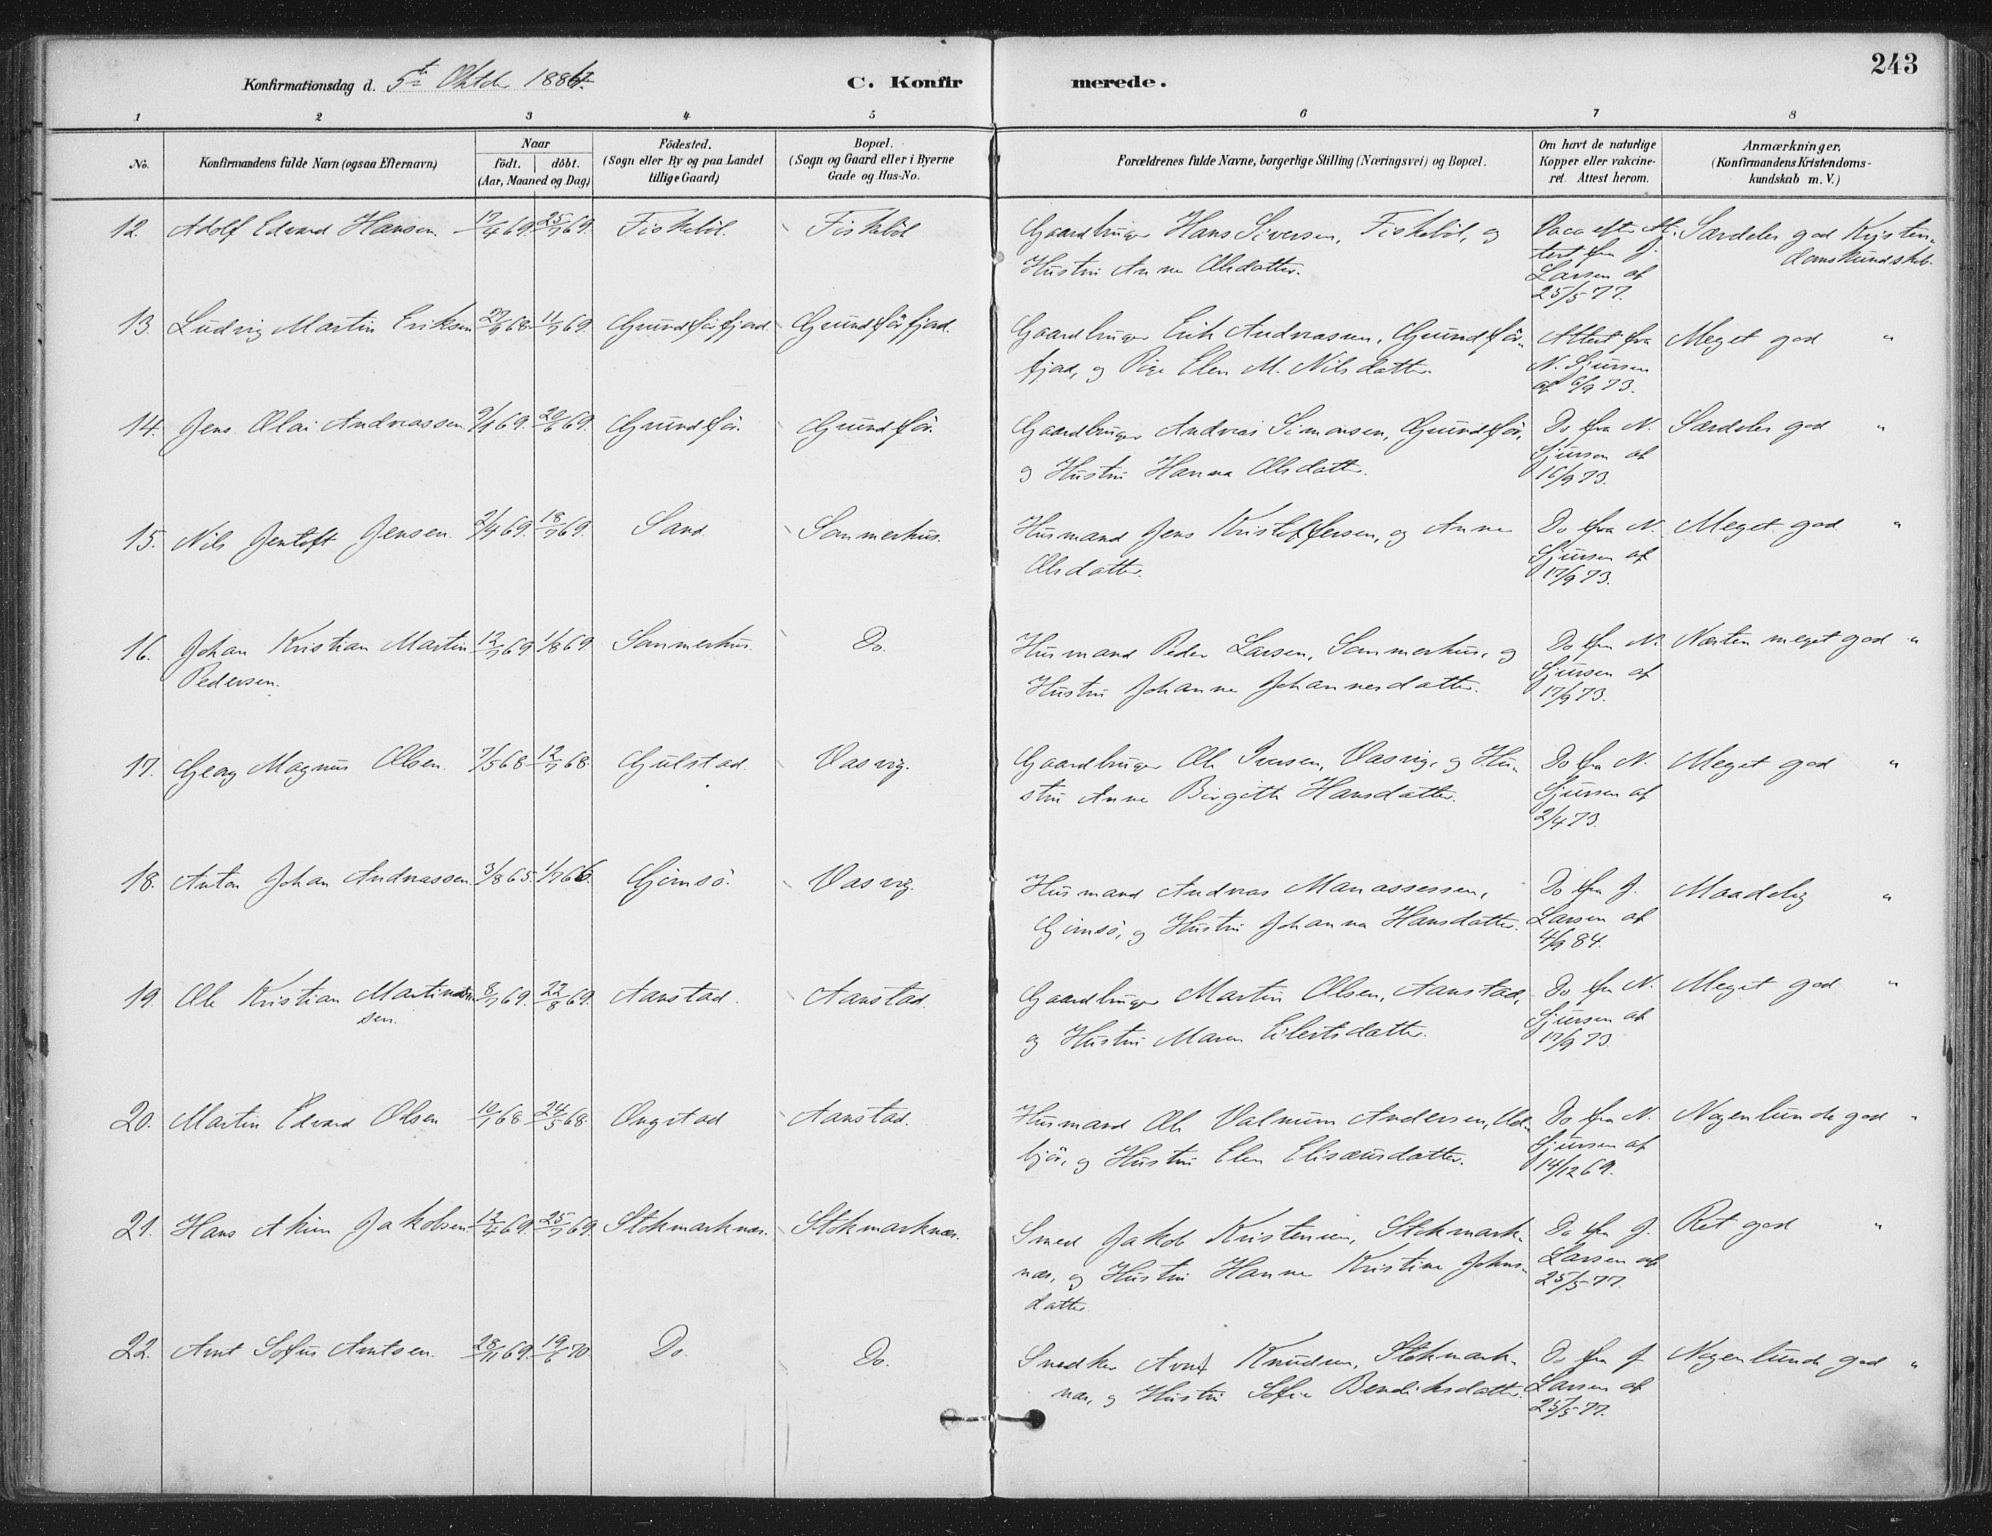 243
Konfirmationsdag d. 5te Oktober 1884.
C. Konfirmerede.
1 2 3 4 5 6 7 8
No.
Konfirmandens fulde Navn (ogsaa Efternavn)
Naar
födt. döbt.
(Aar, Maaned og Dag)
Födested.
(Sogn eller By og paa Landet
tillige Gaard)
Bopæl.
(Sogn og Gaard eller i Byerne
Gade og Hus-No.
Forældrenes fulde Navne, borgerlige Stilling (Næringsvei) og Bopæl.
Om havt de naturlige
Kopper eller vakcine-
ret. Attest herom.
Anmærkninger.
(Konfirmandens Kristendoms-
kundskab m. V.)
12. Adolf Edvard Hansen 17/4 69. 25/7 69. Fiskeböl. Fiskeböl
Gaardbruger Hans Siversen, Fiskeböl, og
Hustru Anne Olsdatter.
Vacc. efter At-
test fra J.
Larsen af
25/5 77.
Særdeles god Kristen-
domskundskab.
13. Ludvig Martin Eriksen 27/9 68. 11/7 69. Grundförfjord. Grundförfjord.
Gaardbruger Erik Andreassen, Grundför-
fjord, og Pige Elen M. Nilsdatter.
Attest fra
N. Sjursen
af 6/9 73.
Meget god "
14. Jens Olai Andreassen 9/1 69. 20/6 69. Grundför. Grundför.
Gaardbruger Andreas Simonsen, Grundför,
og Hustru Hanna Olsdatter.
Do fra N.
Sjursen af
16/9 73.
Særdeles god "
15. Nils Jentoft Jensen. 2/4 69. 18/7 69. Sand Sommerhus.
Husmand Jens Kristoffersen, og Anne
Olsdatter.
Do fra N.
Sjursen af
17/9 73.
Meget god "
16. Johan Kristian Martin 12/7 69. 1/8 69. Sommerhus. Do.
Pedersen.
Husmand Peder Larsen, Sommerhus, og
Hustru Johanne Johannesdatter.
Do fra N.
Sjursen af
17/9 73.
Næsten meget god "
17. Georg Magnus Olsen. 7/5 68. 12/7 68. Gulstad. Vasvig.
Gaardbruger Ole Iversen, Vasvig, og Hu-
stru Anne Birgitte Hansdatter.
Do fra N.
Sjursen af
2/4 73.
Meget god "
18. Anton Johan Andreassen 3/8 65. 1/7 66. Gimsö. Vasvig.
Husmand Andreas Manassessen,
Gimsö, og Hustru Johanna Hansdatter.
Do fra J.
Larsen af
4/9 84.
Maadelig "
19. Ole Kristian Martin- 8/7 69. 22/8 69. Aanstad. Aanstad.
sen.
Gaardbruger Martin Olsen, Aanstad,
og Hustru Maren Eilertsdatter.
Do fra N.
Sjursen af
17/9 73.
Meget god "
20. Martin Edvard Olsen 10/1 68 24/5 68. Ongstad Aanstad.
Husmand Ole Valnum Andersen, Ud-
björ, og Hustru Elen Elisæusdatter.
Do fra N.
Sjursen af
14/12 69.
Nogenlunde god "
21. Hans Akim Jakobsen 12/4 69. 25/7 69. Stokmarknæs. Stokmarknæs.
Smed Jakob Kristensen, Stokmark-
næs, og Hustru Hanne Kristine Johns-
datter.
Do fra J.
Larsen af
25/5 77.
Ret god "
22. Arnt Sofus Arntsen. 28/11 69. 19/6 70. Do. Do.
Snedker Arnt Knudsen, Stokmark-
næs, og Hustru Sofie Bendiksdatter.
Do fra J.
Larsen af
25/5 77.
Nogenlunde god "